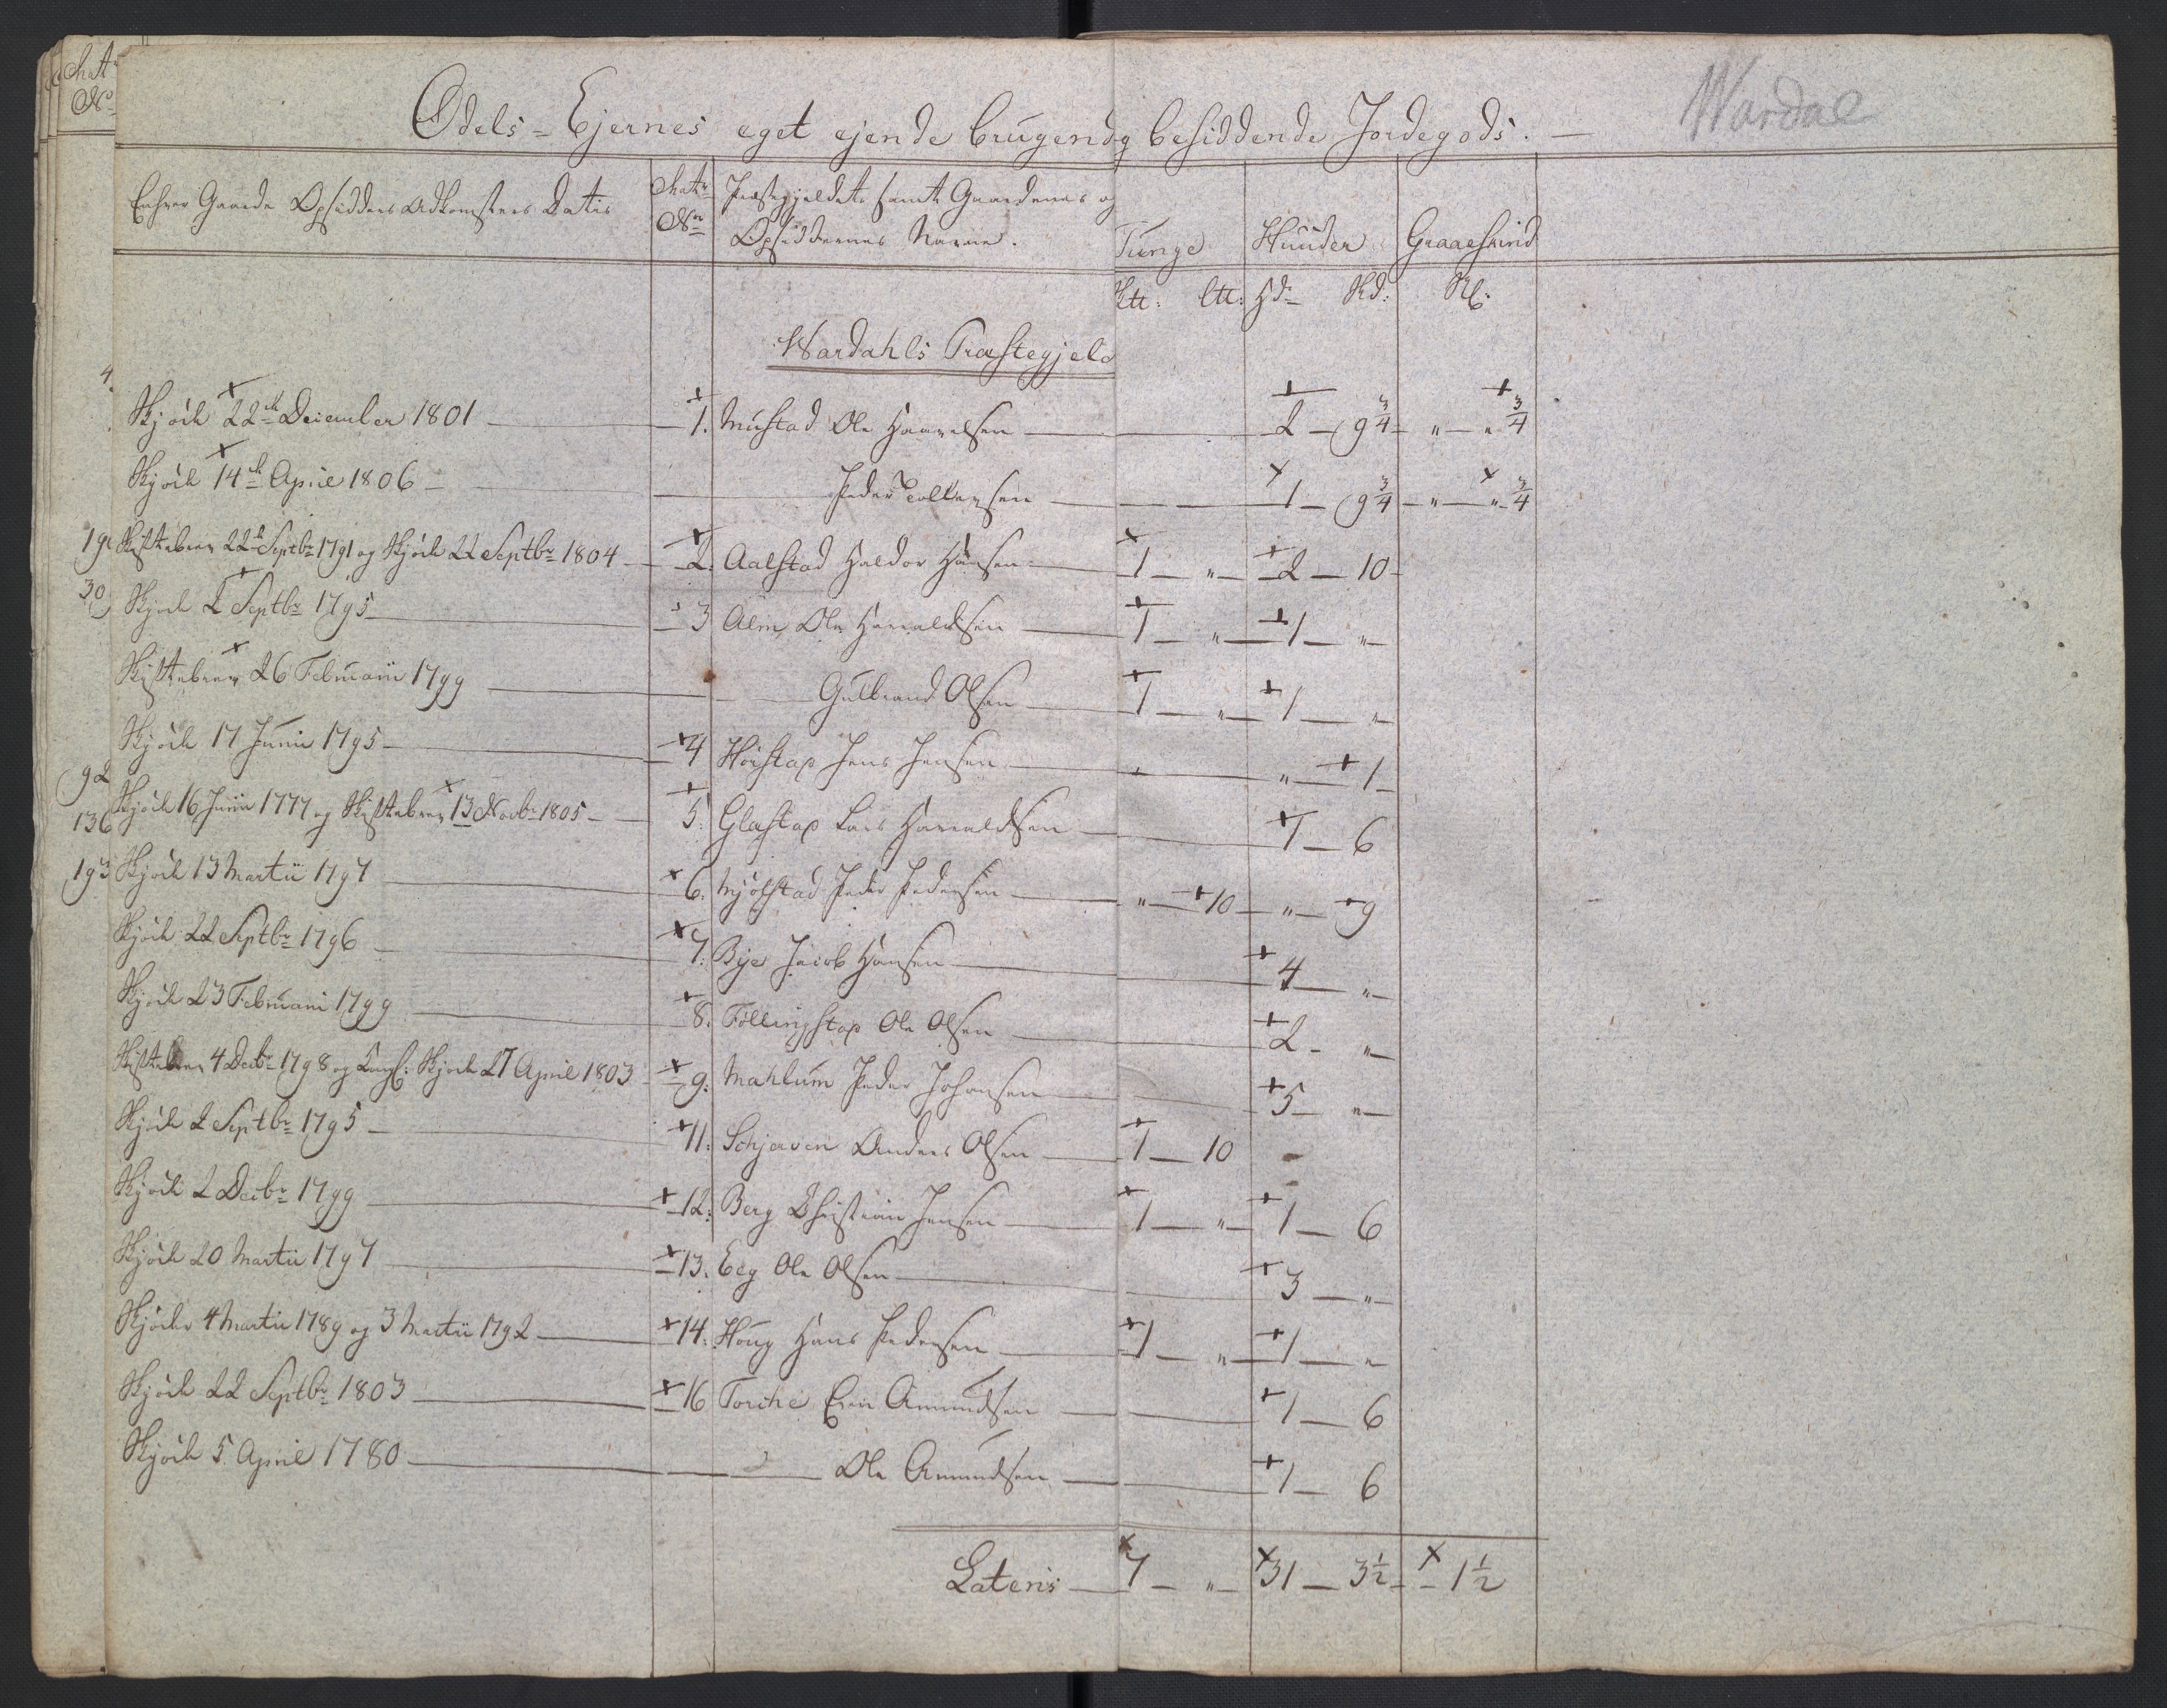 Wardal
Odels-Ejernes eget ejende brugende og besiddende Jordegods. —
Matr
No
Enhver Gaards Opsidders Adkomsters Datis
Matr No
Præstegjeldets samt Gaardenes og Opsiddernes Navne.
Tunge
Huuder
Graaeskind
Hd Skd:
Wardahls Præstegjeld
Skjöde 22de December 1801 — 1. Mustad Ole Haavelsen — 2 — 9 3/4 — „ — „ 3/4
Skjöde 14de April 1806 — Peder Tollersen — 1 — 9 3/4 — „ — „ 3/4
Skiftebrev 22de Septbr 1791 og Skjöde 22 Septbr 1804 — 2. Aalstad Haldor Hansen — 1 — „ — 2 — 10
Skjöde 2 Septbr 1795 — 3 Alm Ole Haraldsen — 1 — „ — 1 — „
Skiftebrev 26 Februarii 1799 — Gulbrand Olsen — 1 — „ — 1 — „
Skjöde 17 Junii 1795 — 4 Höistap Jens Jensen — „ — 1
Skjöde 16 Junii 1777 og Skiftebrev 13 Novbr 1805 — 5. Glæstap Lars Haraldsen — 1 — 6
Skjöde 13 Martii 1797 — 6. Mjölstad Peder Pedersen — „ — 10 — „ — 9
Skjöde 22 Septbr 1796 — 7. Bye Jacob Hansen — 4 — „
Skjöde 23 Februarii 1799 — 8. Föllingstap Ole Olsen — 2 — „
Skiftebrev 4 Decbr 1798 og Skjöde 27 April 1803 — 9. Mahlum Peder Johansen — 5 — „
Skjöde 2 Septbr 1795 — 11. Schjæven Anders Olsen — 1 — 10
Skjöde 2 Decbr 1799 — 12. Berg Christian Jensen — 1 — „ — 1 — 6
Skjöde 20 Martii 1797 — 13. Eeg Ole Olsen — 3 — „
Skjöder 4 Martii 1789 og 3 Martii 1792 — 14. Houg Hans Pedersen — 1 — „ — 1 — „
Skjöde 22 Septbr 1803 — 16 Amundsen — 1 — 6
Skjöde 5 April 1780 — Ole Amundsen — 1 — 6
Lateris — 7 — „ — 31 — 3 1/2 — 1 1/2